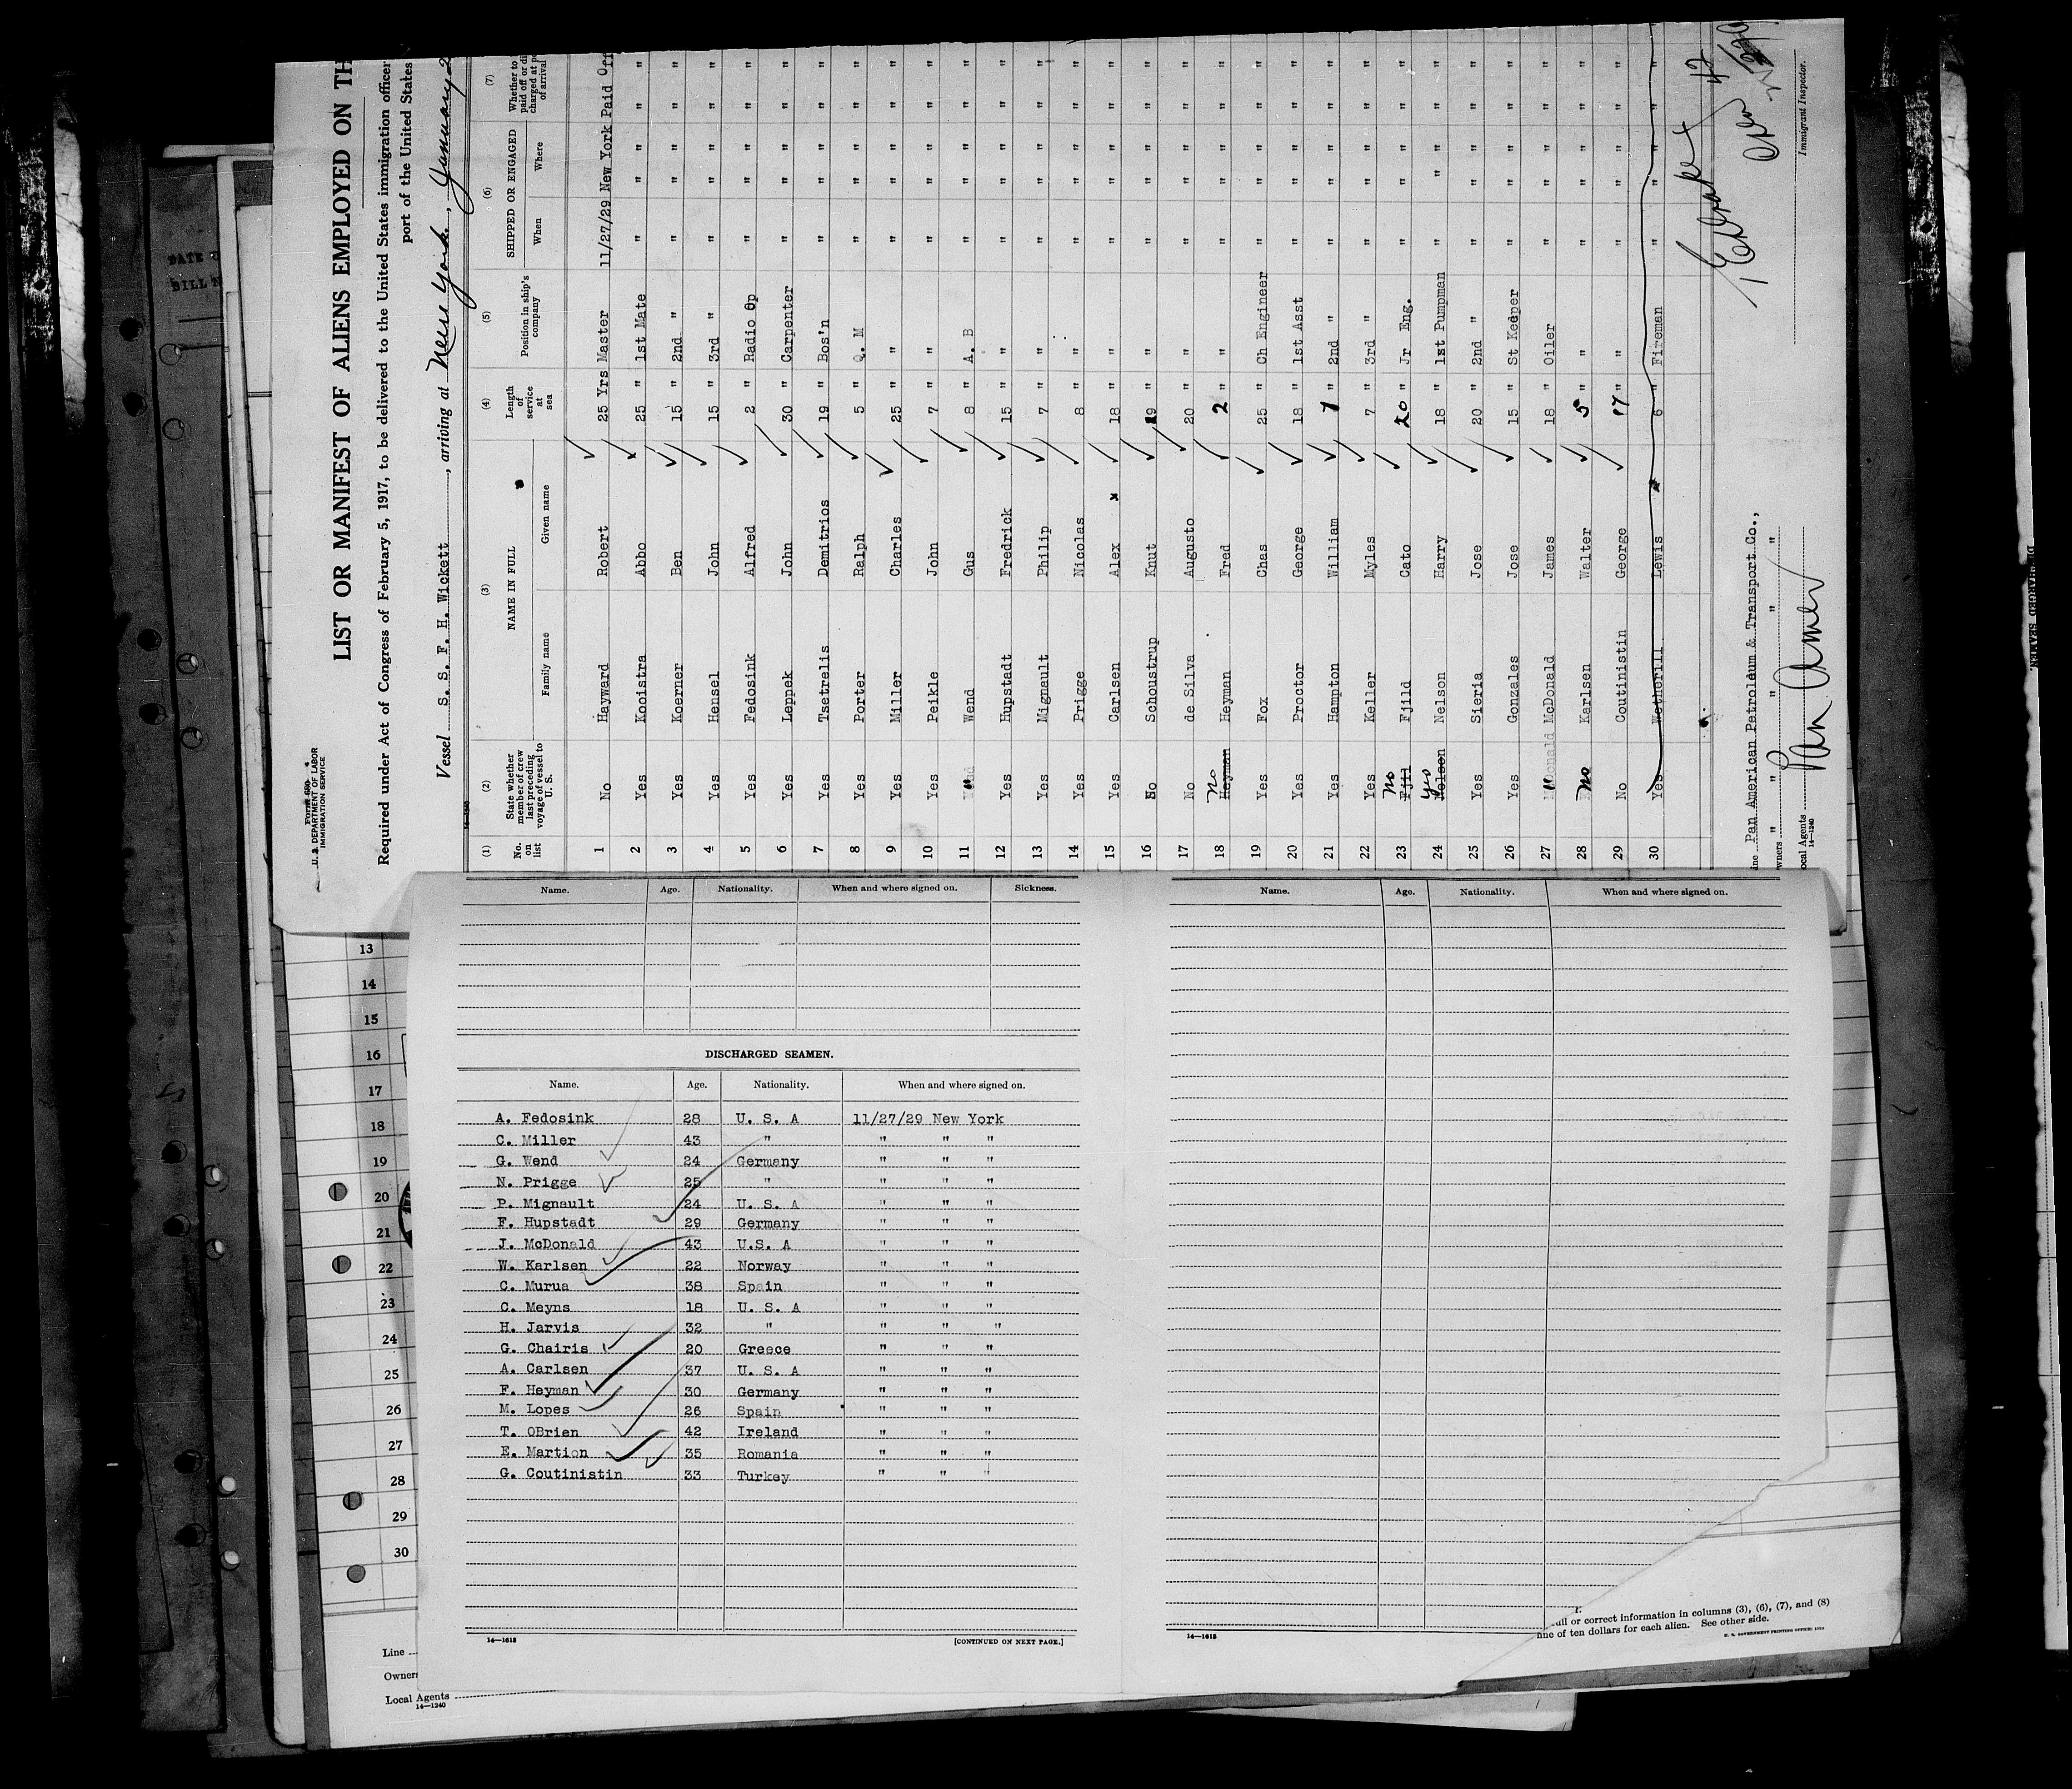 Form 680
U. S. DEPARTMENT OF LABOR
IMMIGRATION SERVICE
LIST OR MANIFEST OF ALIENS EMPLOYED ON TH
Required under Act of Congress of February 5, 1917, to be delivered to the United States immigration officer
port of the United States
Vessel S. S. F. H. Wickett, arriving at New York, January 2
(1) (2) (3) (4) (5) (6) (7)
No. on list State whether member of crew last preceding voyage of vessel to U. S. NAME IN FULL Family name Given name Length of service at sea Position in ship's company SHIPPED OR ENGAGED When Where Whether to paid off or di charged at p of arrival
1 No Hayward Robert 25 Yrs Master 11/27/29 New York Paid Off
2 Yes Kooistra Abbo 25 " 1st Mate " " " " "
3 Yes Koerner Ben 15 " 2nd " " " " " "
4 Yes Hensel John 15 " 3rd " " " " " "
5 Yes Fedosink Alfred 2 " Radio Op " " " " "
6 Yes Leppek John 30 " Carpenter " " " " "
7 Yes Tsetrelis Demitrios 19 " Bos'n " " " " "
8 Yes Porter Ralph 5 " Q. M " " " " "
9 Yes Miller Charles 25 " " " " " " "
10 Yes Peikle John 7 " " " " " " "
11 Wend Gus 8 " A. B " " " " "
12 Yes Hupstadt Fredrick 15 " " " " " " "
13 Yes Mignault Philip 7 " " " " " " "
14 Yes Prigge Nicolas 8 " " " " " " "
15 Yes Carlsen Alex x 18 " " " " " " "
16 No Schoustrup Knut 19 " " " " " " "
17 No de Silva Augusto 20 " " " " " " "
18 Heyman No Heyman Fred 2 " " " " " " "
19 Yes Fox Chas 25 " Ch Engineer " " " " "
20 Yes Proctor George 18 " 1st Asst " " " " "
21 Yes Hampton William 7 " 2nd " " " " " "
22 Yes Keller Myles 7 " 3rd " " " " " "
23 Fjil No Fjild Cato 20 " Jr Eng. " " " " "
24 Nelson Yes Nelson Harry 18 " 1st Pumpman " " " " "
25 Yes Sieria Jose 20 " 2nd " " " " " "
26 Yes Gonzales Jose 15 " St Keeper " " " " "
27 McDonald McDonald James 18 " Oiler " " " " "
28 No Karlsen Walter 5 " " " " " " "
29 No Coutinistin George 17 " " " " " " "
30 Yes Wetherill Lewis 6 " Fireman " " " " "
Line Pan American Petroleum & Transport Co.,
Owners " " " "
Local Agents Pan Amer
14—1240
42
Immigrant Inspector.
Name. Age. Nationality. When and where signed on. Sickness.
DISCHARGED SEAMEN.
Name. Age. Nationality. When and where signed on.
A. Fedosink 28 U. S. A 11/27/29 New York
C. Miller 43 " " " "
G. Wend 24 Germany " " "
N. Prigge 25 " " " "
P. Mignault 24 U. S. A " " "
F. Hupstadt 29 Germany " " "
J. McDonald 43 U.S. A " " "
W. Karlsen 22 Norway " " "
C. Murua 38 Spain " " "
C. Meyns 18 U. S. A " " "
H. Jarvis 32 " " " "
G. Chairis 20 Greece " " "
A. Carlsen 37 U. S. A " " "
F. Heyman 30 Germany " " "
M. Lopes 26 Spain " " "
T. OBrien 42 Ireland " " "
E. Martion 35 Romania " " "
G. Coutinistin 33 Turkey " " "
14—1613
[CONTINUED ON NEXT PAGE.]
Name. Age. Nationality. When and where signed on.
14—1613
full or correct information in columns (3), (6), (7), and (8)
fine of ten dollars for each alien. See other side.
U. S. GOVERNMENT PRINTING OFFICE
13
14
15
16
17
18
19
20
21
22
23
24
25
26
27
28
29
30
Line
Owners
Local Agents
14—1240
DATE
BILL
DISCHARGED SEAMEN